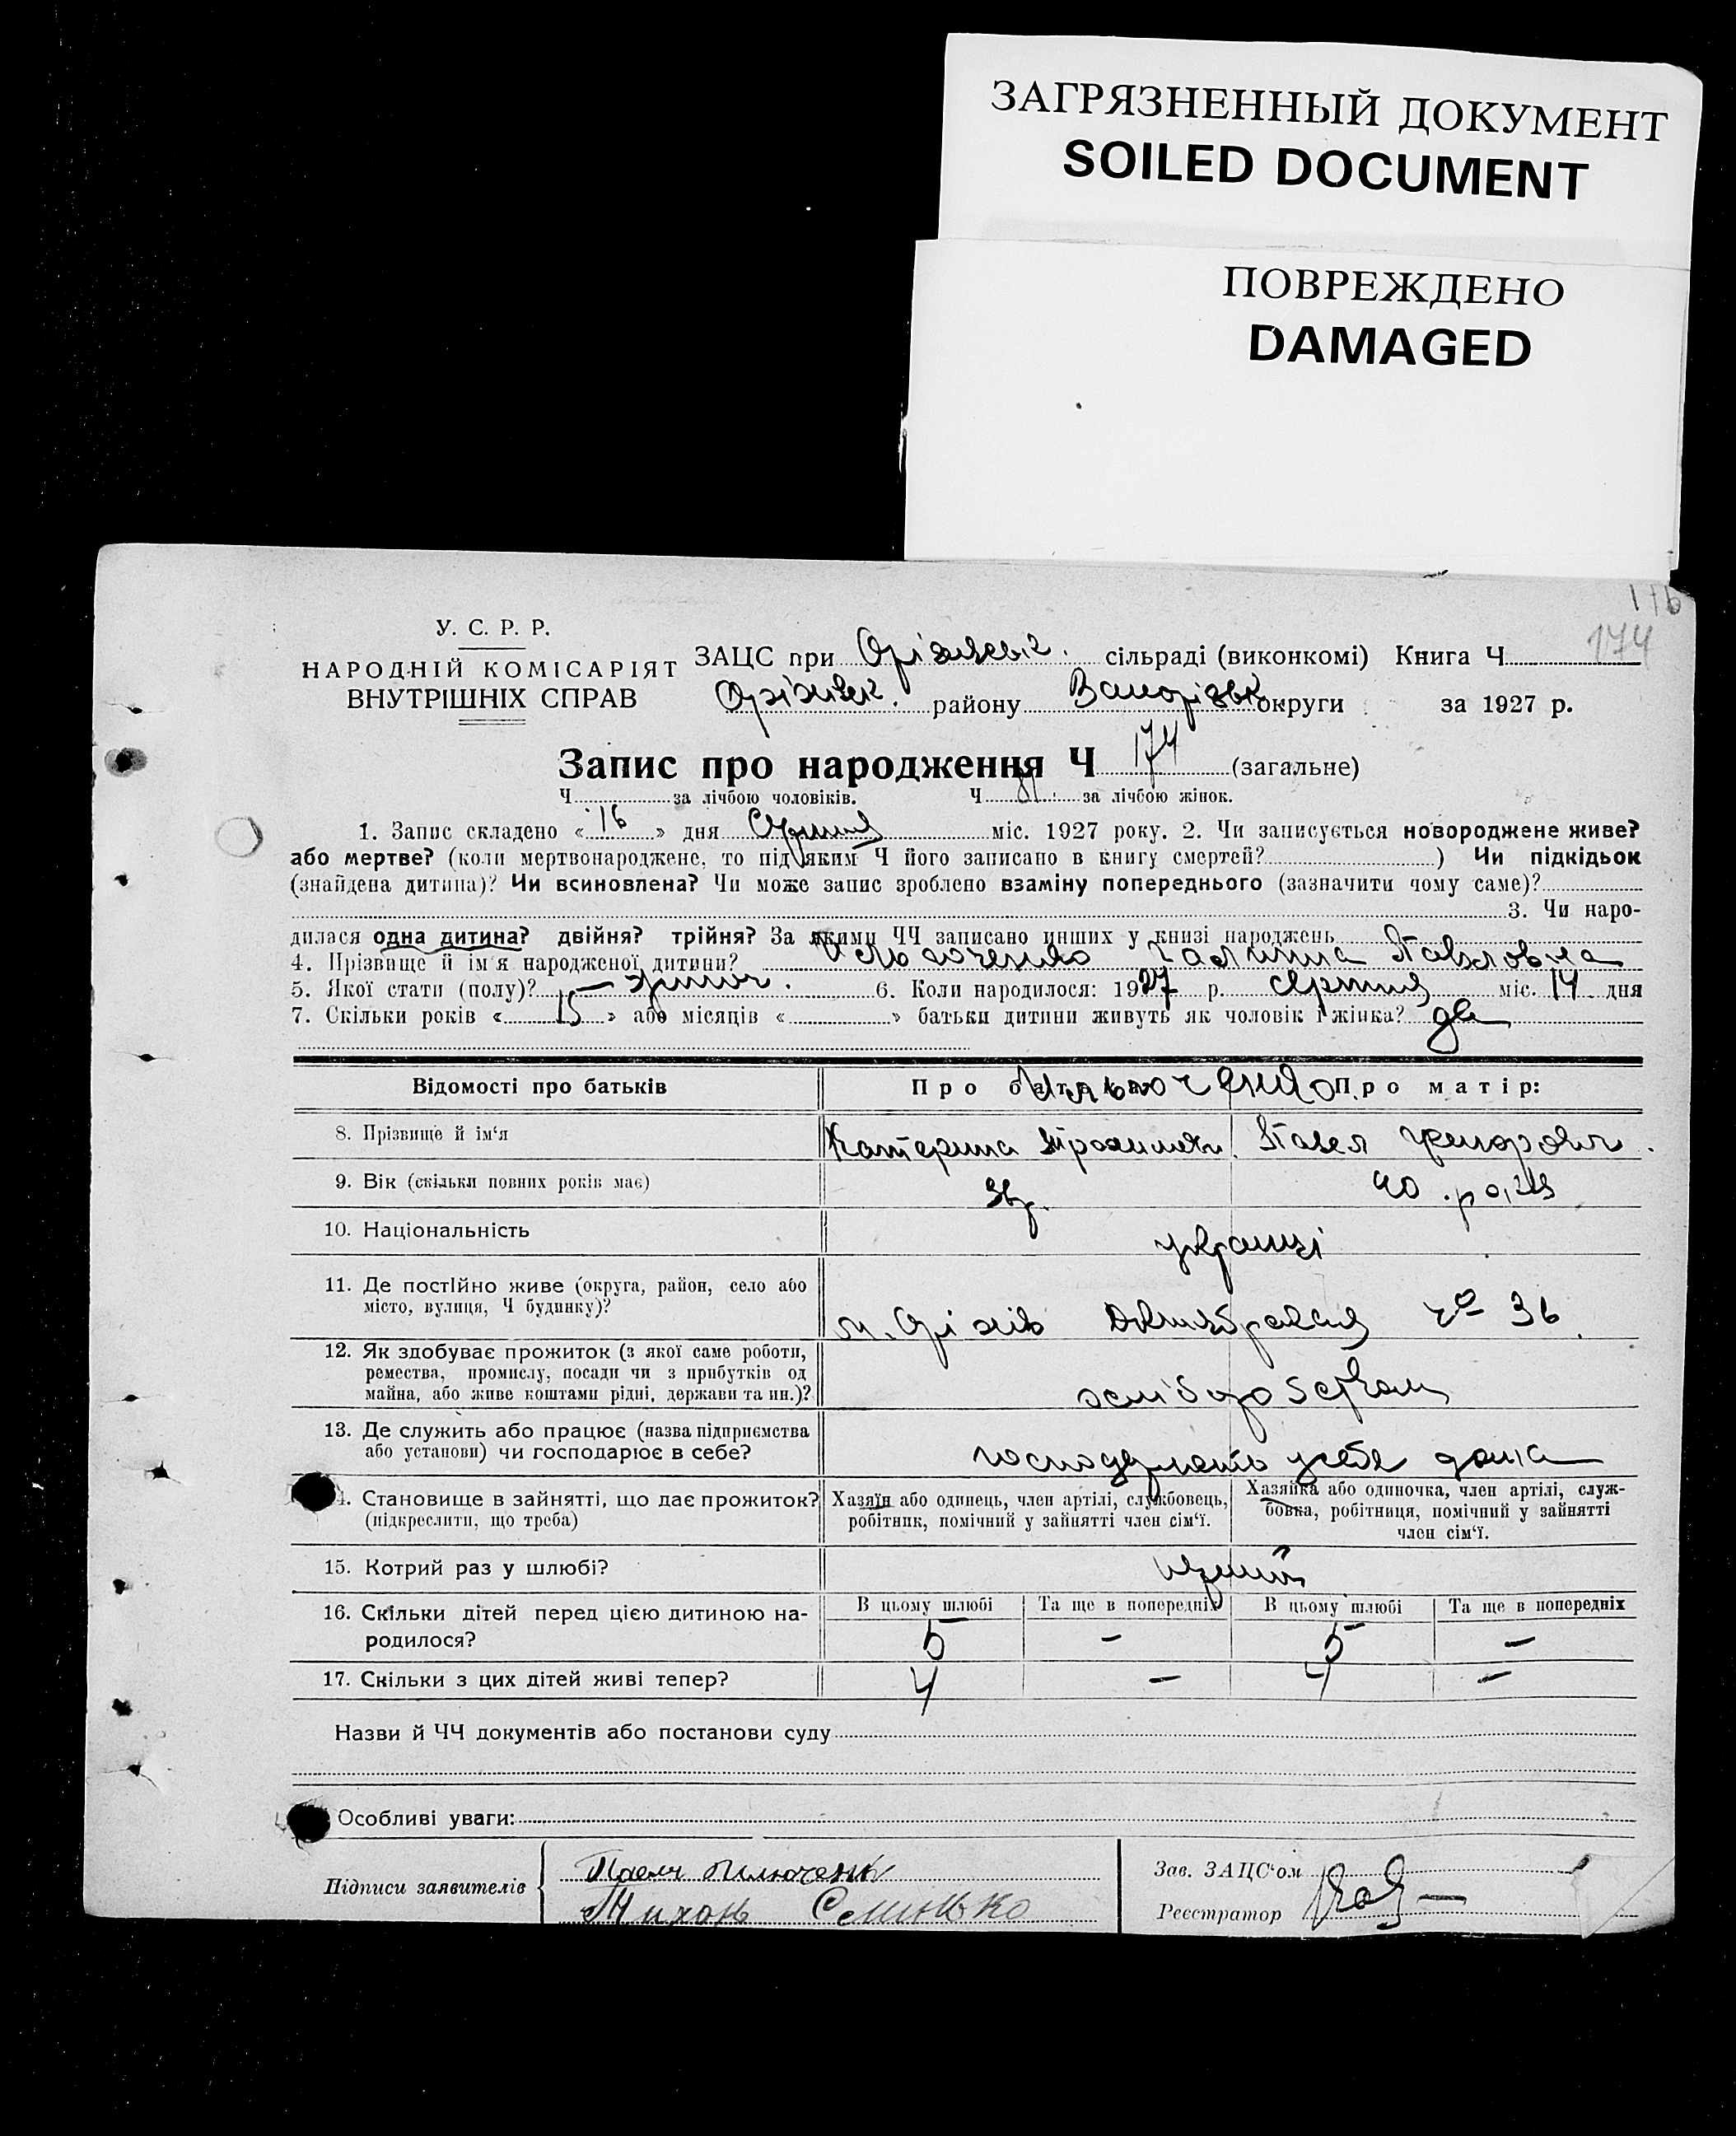 ЗАГРЯЗНЕННЫЙ ДОКУМЕНТ
SOILED DOCUMENT
ПОВРЕЖДЕНО
DAMAGED
174
У. С. Р. Р.
НАРОДНІЙ КОМІСАРІЯТ
ВНУТРІШНІХ СПРАВ
ЗАЦС при Оріхівськ. сільраді (виконкомі) Книга Ч
Оріхівськ. району Запорізьк округи за 1927 р.
Запис про народження Ч 174 (загальне)
Ч за лічбою чоловіків. Ч 81. за лічбою жінок.
1. Запис складено « 16 » дня Серпня міс. 1927 року. 2. Чи записується новороджене живе?
або мертве? (коли мертвонароджене, то під яким Ч його записано в книгу смертей? ) Чи підкідьок
(знайдена дитина)? Чи всиновлена? Чи може запис зроблено взаміну попереднього (зазначити чому саме)?
3. Чи наро-
дилася одна дитина? двійня? трійня? За якими ЧЧ записано инших у книзі народжень
4. Прізвище й ім'я народженої дитини? Галина Павловна
5. Якої стати (полу)? — жіноч. 6. Коли народилося: 1927 р. серпня міс. 14 дня
7. Скільки років « 15 » або місяців « » батьки дитини живуть як чоловік і жінка? да
Відомості про батьків
Про батька: Про матір:
8. Прізвище й ім'я Катерина Павел
9. Вік (скільки повних років має) 36 р. 40 років
10. Національність українці
11. Де постійно живе (округа, район, село або
місто, вулиця, Ч будинку)?
м. Оріхів 36
12. Як здобуває прожиток (з якої саме роботи,
ремества, промислу, посади чи з прибутків од
майна, або живе коштами рідні, держави та ин.)?
хліборобством
13. Де служить або працює (назва підприємства
або установи) чи господарює в себе?
господарюють у себе дома
14. Становище в зайнятті, що дає прожиток?
(підкреслити, що треба)
Хазяїн або одинець, член артілі, службовець,
робітник, помічний у зайнятті член сім'ї.
Хазяйка або одиночка, член артілі, служ-
бовка, робітниця, помічний у зайнятті
член сім'ї.
15. Котрий раз у шлюбі? перший
16. Скільки дітей перед цією дитиною на-
родилося?
В цьому шлюбі Та ще в попередніх В цьому шлюбі Та ще в попередніх
5 — 5 —
17. Скільки з цих дітей живі тепер? 4 — 4 —
Назви й ЧЧ документів або постанови суду
Особливі уваги:
Підписи заявителів
Семінько
Зав. ЗАЦС'ом
Реєстратор